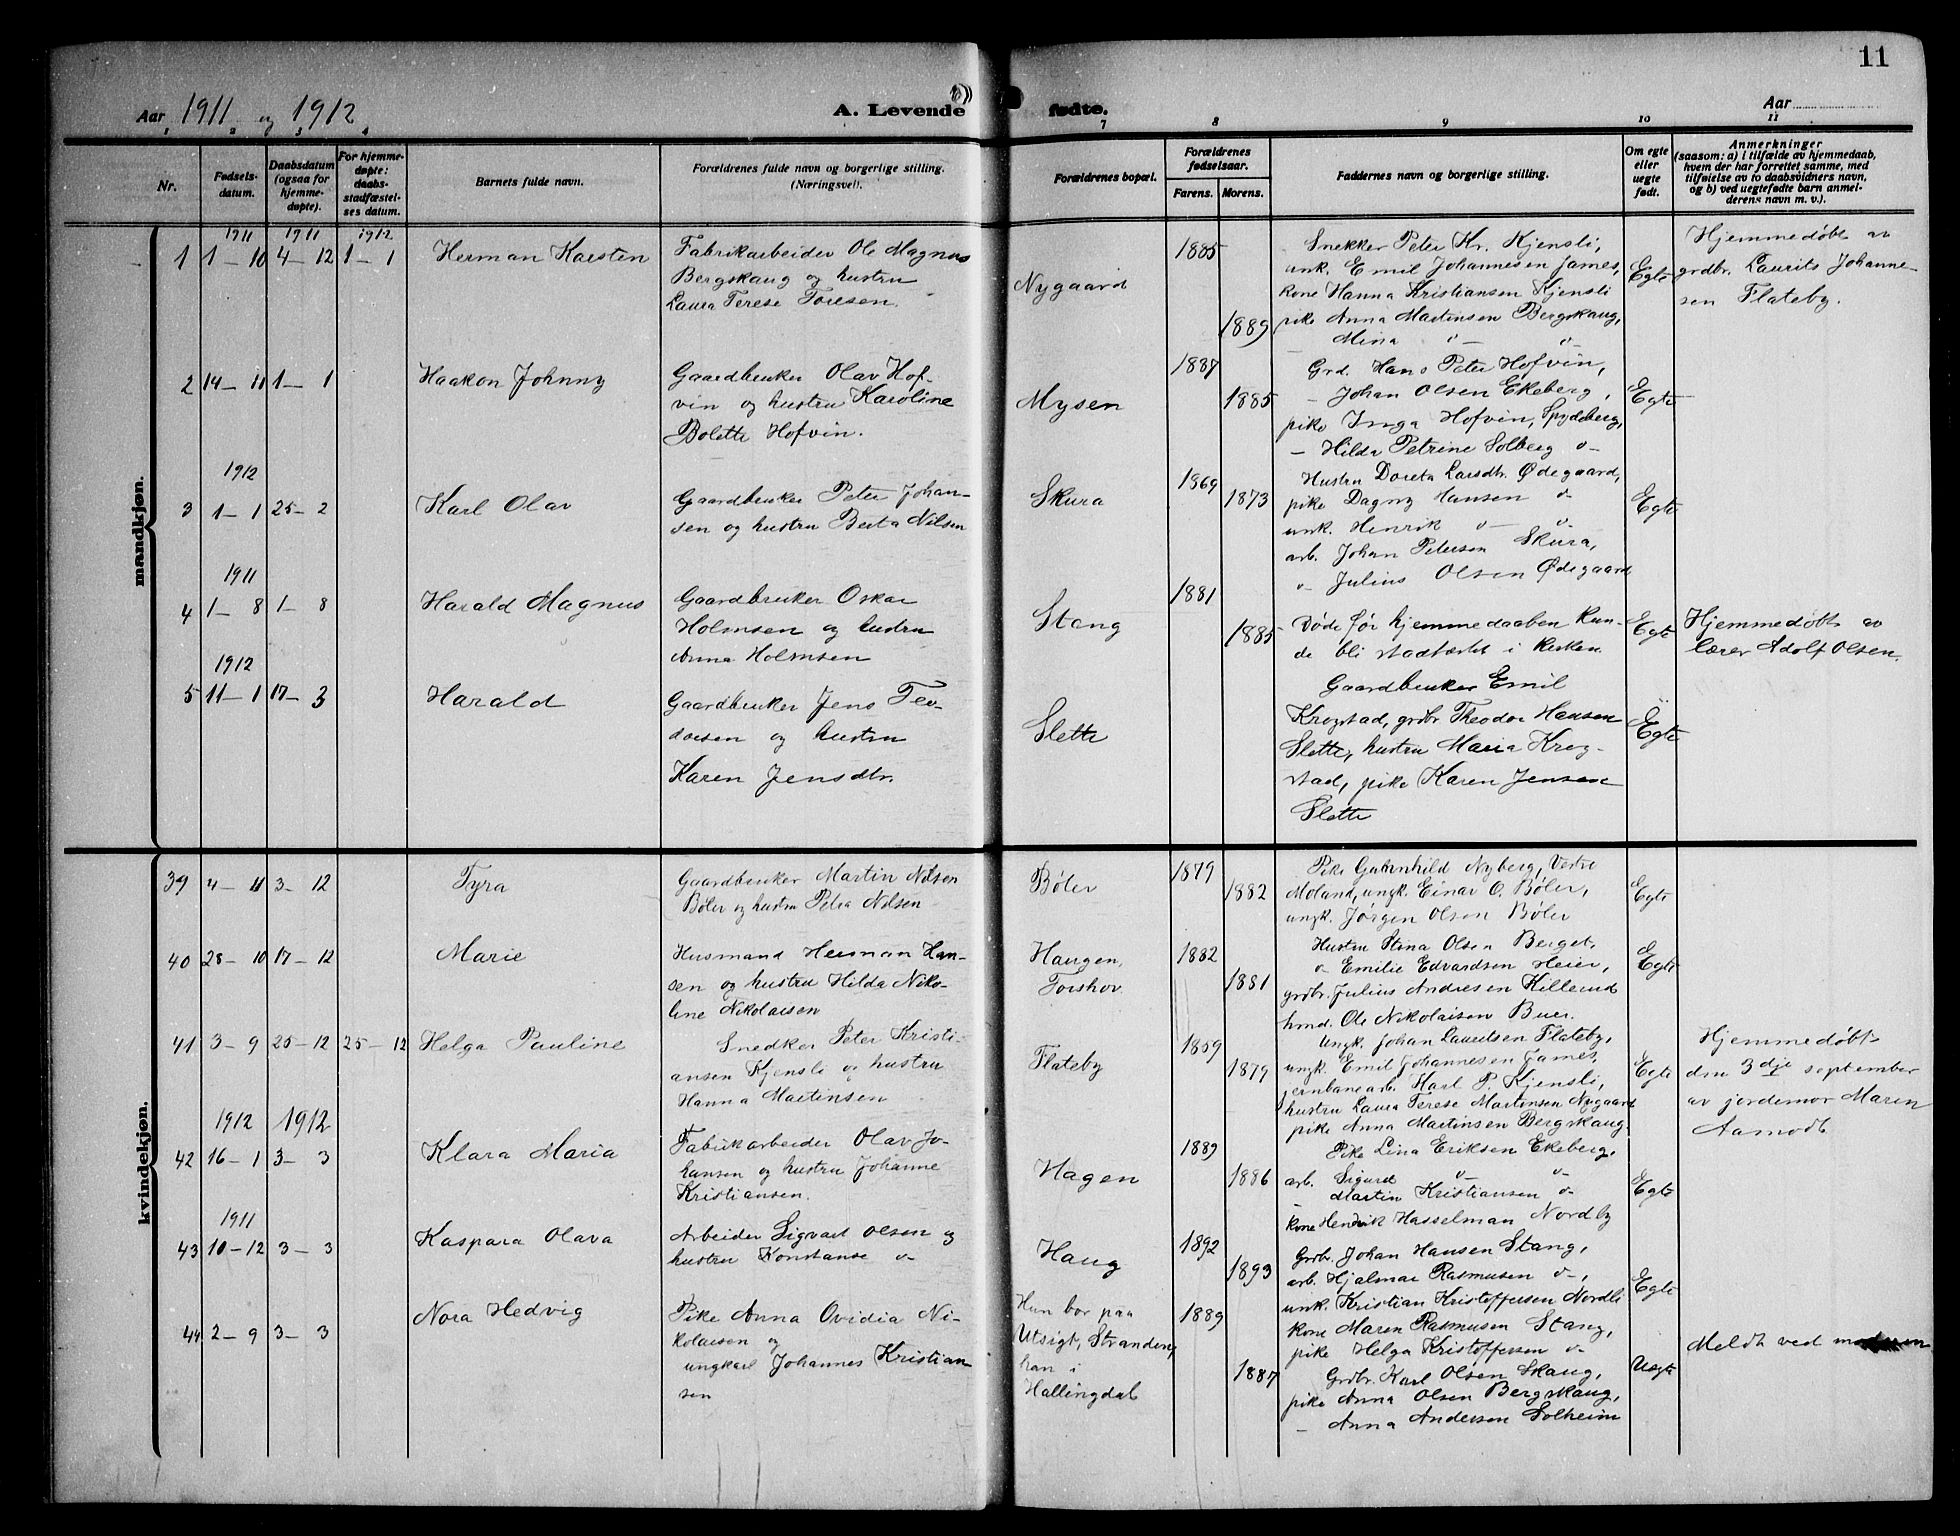 11
Aar 1911 og 1912
A. Levende fødte.
Aar
1 2 3 4 7 8 9 10 11
Nr.
Fødsels-
datum.
Daabsdatum
(ogsaa for
hjemme-
døpte).
For hjemme-
døpte:
daabs-
stadfæstel-
ses datum.
Barnets fulde navn.
Forældrenes fulde navn og borgerlige stilling.
(Næringsvei).
Forældrenes bopæl.
Forældrenes
fødselsaar.
Farens. Morens.
Faddernes navn og borgerlige stilling.
Om egte
eller
uegte
født.
Anmerkninger
(saasom: a) i tilfælde av hjemmedaab,
hvem der har forrettet samme, med
tilføielse av to daabsvidners navn,
og b) ved uegtefødte barn anmel-
derens navn m. v.).
mandkjøn.
1911 1911 1912
1 1–10 4–12 1–1
Herman Karsten
Fabrikarbeider Ole Magnus
Bergskaug og hustru
Laura Terese Toresen.
Nygaard
1885
1889
Snekker Peter Kr. Kjensli,
unk. Emil Johannesen James,
kone Hanna Kristiansen Kjensli
pike Anna Martinsen Bergskaug,
– Mina o– o–
Egte
Hjemmedøbt av
grdbr. Laurits Johanne-
sen Flateby.
2 14–11 1–1
Haakon Johnny
Gaardbruker Olav Hof-
vin og hustru Karoline
Bolette Hofvin.
Mysen
1887
1885
Grd. Hans Peter Hofvin,
– Johan Olsen Ekeberg,
pike Inga Hofvin, Spydeberg,
– Hilda Petrine Solberg o–
Egte
1912
3 1–1 25–2
Karl Olav
Gaardbruker Peter Johan-
sen og hustru Berta Nilsen
Skura
1869
1873
Hustru Doreta Larsdtr. Ødegaard,
pike Dagny Hansen o–
unk. Henrik o– o–
arb. Johan Petersen Skura,
o– Julius Olsen Ødegaard
Egte
1911
4 1–8 1–8
Harald Magnus
Gaardbruker Oskar
Holmsen og hustru
Anna Holmsen
Stang
1881
1885
Døde før hjemmedaaben kun-
de bli stadfæstet i kirken.
Egte
Hjemmedøbt av
lærer Adolf Olsen.
1912
5 11–1 17–3
Harald
Gaardbruker Jens Teo-
dorsen og hustru
Karen Jensdtr.
Slette
Gaardbruker Emil
Krogstad, grdbr Theodor Hansen
Slette, hustru Maria Krog-
stad, pike Karen Jensen
Slette
Egte
kvindekjøn.
39 4–11 3–12
Tyra
Gaardbruker Martin Nilsen
Bøler og hustru Petra Nilsen
Bøler
1879
1882
Pike Gunhild Nyberg, Vestre
Moland, ungk. Einar O. Bøler,
ungk. Jørgen Olsen Bøler
Egte
40 28–10 17–12
Marie
Husmand Herman Han-
sen og hustru Hilda Niko-
line Nikolaisen
Haugen,
Torshov.
1882
1881
Hustru Stina Olsen Berget,
o– Emilie Edvardsen Heier,
grdbr. Julius Andresen Killerud
hmd. Ole Nikolaisen Buer.
Egte
41 3–9 25–12 25–12
Helga Pauline
Snedker Peter Kristi-
ansen Kjensli og hustru
Hanna Martinsen
Flateby
1859
1879
Ungk. Johan Lauritsen Flateby,
ungk. Emil Johannesen James,
jernbanearb. Karl P. Kjensli,
hustru Laura Terese Martinsen Nygaard
pike Anna Martinsen Bergskaug.
Egte
Hjemmedøbt
den 3dje september
av jordemor Maren
Aamodt
1912 1912
42 16–1 3–3
Klara Maria
Fabrikarbeider Olav Jo-
hansen og hustru Johanne
Kristiansen.
Hagen
1889
1886
Pike Lina Eriksen Ekeberg,
arb. Sigurd o– o–
– Martin Kristiansen o–
kone Hendrik Hasselman Nordby
Egte
1911
43 10–12 3–3
Kaspara Olava
Arbeider Sigvart Olsen og
hustru Konstanse o–
Haug
1892
1893
Grdbr. Johan Hansen Stang,
arb. Hjalmar Rasmusen o–,
unk. Kristian Kristoffersen Nordli
kone Maren Rasmusen Stang,
pike Helga Kristoffersen o–
Egte
44 2–9 3–3
Nora Hedvig
Pike Anna Ovidia Ni-
kolaisen og
ungkarl Johannes Kristian
sen
Hun bor paa
Utsigt, Stranden,
han i
Hallingdal
1889
1887
Grdbr. Karl Olsen Skaug,
pike Anna Olsen Bergskaug,
– Anna Andersen Solheim
Uegte
Meldt ved moderen